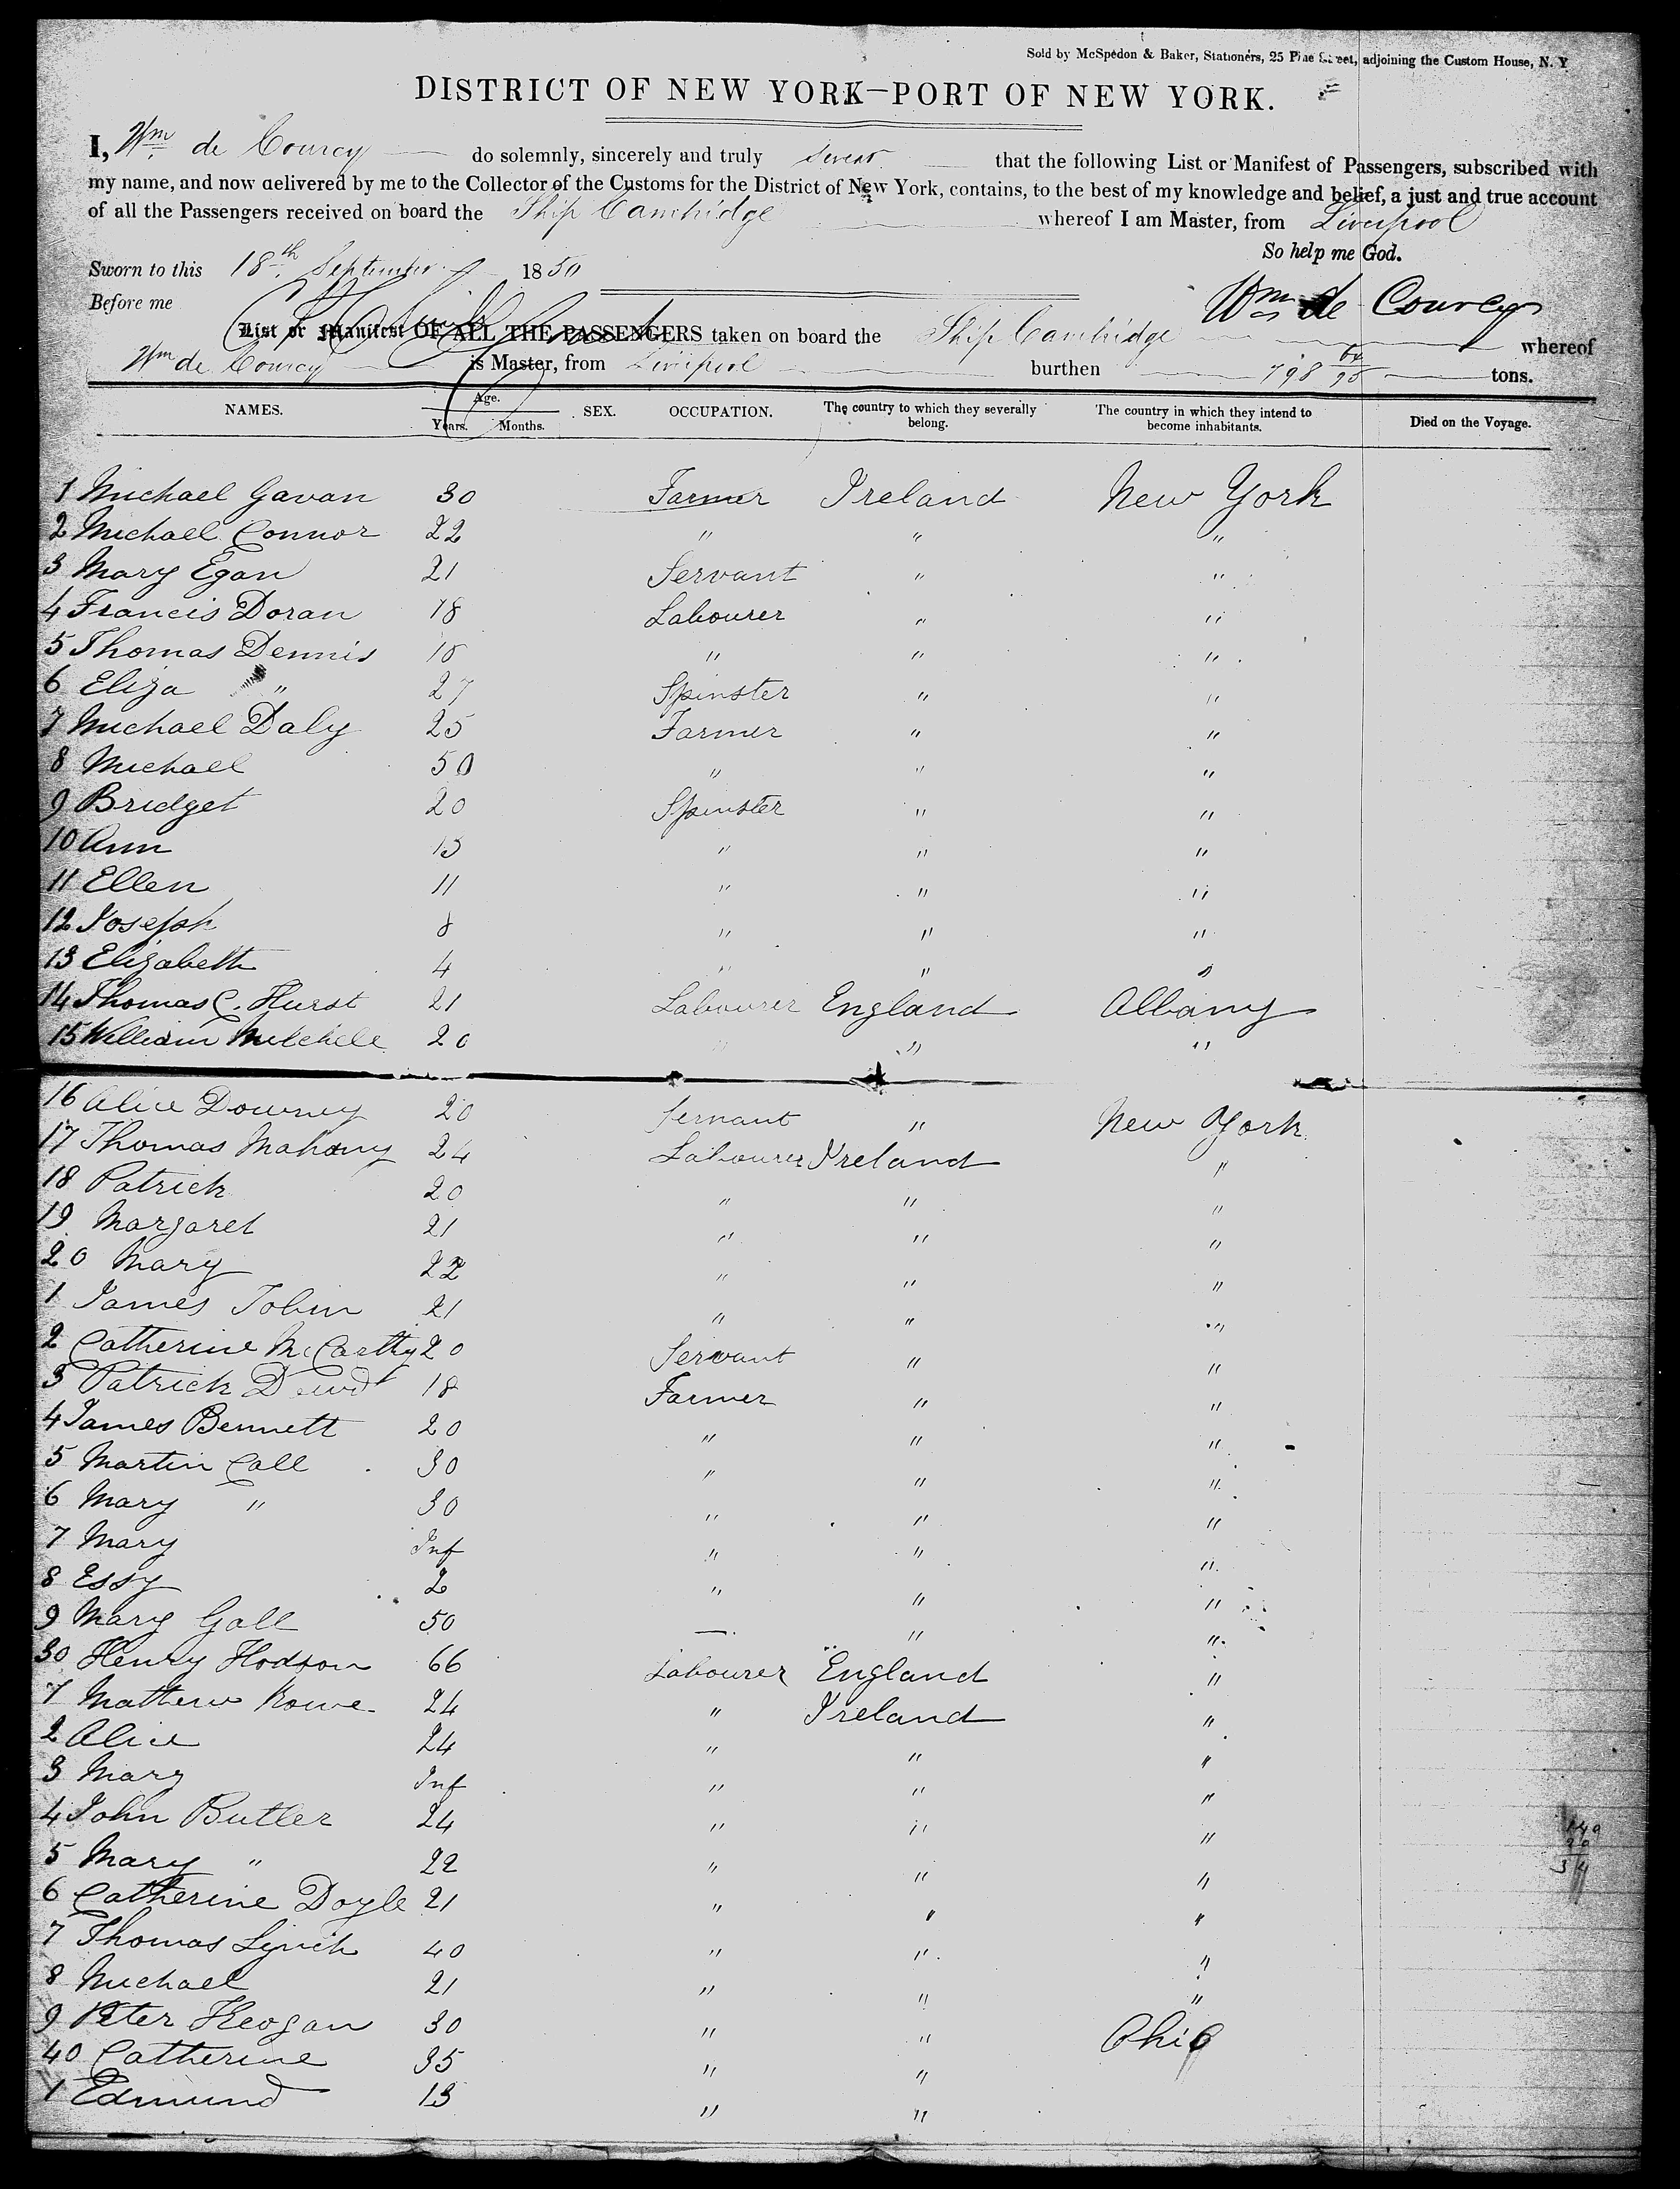 Sold by McSpedon & Baker, Stationers, 25 Pine Street, adjoining the Custom House, N. Y
DISTRICT OF NEW YORK—PORT OF NEW YORK.
I, Wm de Courcy do solemnly, sincerely and truly swear that the following List or Manifest of Passengers, subscribed with
my name, and now delivered by me to the Collector of the Customs for the District of New York, contains, to the best of my knowledge and belief, a just and true account
of all the Passengers received on board the Ship Cambridge whereof I am Master, from Liverpool
So help me God.
Sworn to this 18th September 1850
Before me
Wm de Courcy
List or Manifest OF ALL THE PASSENGERS taken on board the Ship Cambridge whereof
Wm de Courcy is Master, from Liverpool burthen 798 64/95 tons.
NAMES. Age. Years. Months. SEX. OCCUPATION. The country to which they severally belong. The country in which they intend to become inhabitants. Died on the Voyage.
1 Michael Gavan 30 Farmer Ireland New York
2 Michael Connor 22 " " "
3 Mary Egan 21 Servant " "
4 Francis Doran 18 Labourer " "
5 Thomas Dennis " " "
6 Eliza " 27 Spinster " "
7 Michael Daly 25 Farmer " "
8 Michael 50 " " "
9 Bridget 20 Spinster " "
10 Ann 13 " " "
11 Ellen 11 " " "
12 Joseph 8 " " "
13 Elizabeth 4 " " "
14 Thomas C. Hurst 21 Labourer England Albany
15 William Mitchell 20 " " "
16 Alice Downey 20 Servant " New York
17 Thomas Mahony 24 Labourer Ireland "
18 Patrick 20 " " "
19 Margaret 21 " " "
20 Mary 22 " " "
1 James Tobin 21 " " "
2 Catherine McCarthy 20 Servant " "
3 Patrick 18 Farmer " "
4 James Bennett 20 " " "
5 Martin Call 30 " " "
6 Mary " 30 " " "
7 Mary Inf " " "
8 Essy 2 " " "
9 Mary Gall 50 — " "
30 Henry Hodson 66 Labourer England "
1 Mathew Rowe 24 " Ireland "
2 Alice 24 " " "
3 Mary Inf " " "
4 John Butler 24 " " "
5 Mary " 22 " " "
6 Catherine Doyle 21 " " "
7 Thomas Lynch 40 " " "
8 Michael 21 " " "
9 Peter Keogan 30 " " Ohio
40 Catherine 35 " "
1 Edmund 13 " "